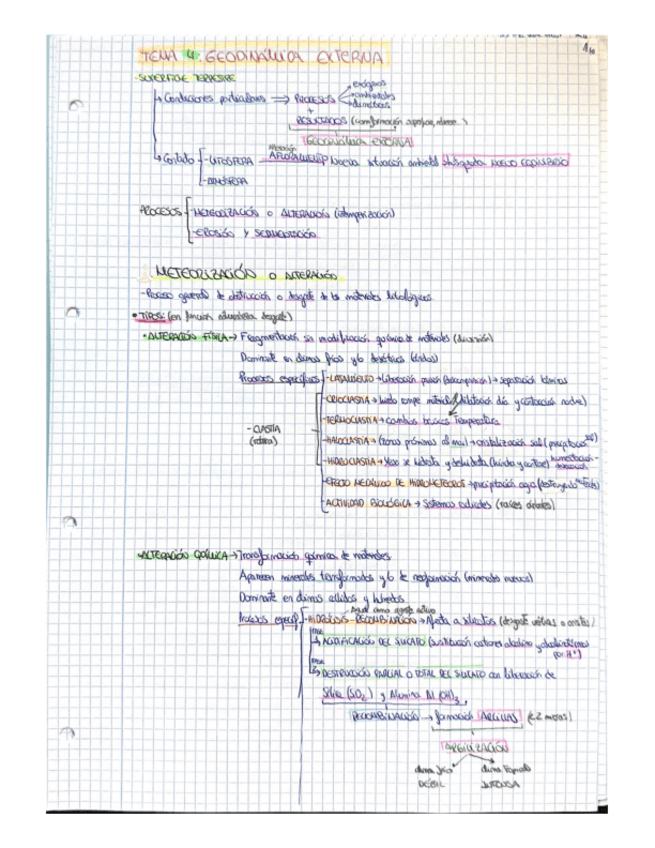 TEMA 4: GEODINÁMICA EXTERNA
SUPERFICIE TERRESTRE
Condiciones particulares ⇒ PROCESOS
exógenos
ambientales
climáticos
+
RESULTADOS (conformación
GEODINÁMICA EXTERNA
Contacto
- LITOSFERA
AFLORAMIENTO nueva situación ambiental búsqueda NUEVO EQUILIBRIO
- ATMÓSFERA
PROCESOS
- METEORIZACIÓN O ALTERACIÓN (intemperización)
- EROSIÓN Y SEDIMENTACIÓN
METEORIZACIÓN O ALTERACIÓN
- Proceso general de destrucción o desgaste de los materiales litológicos
• TIPOS: (en función desgaste)
• ALTERACIÓN FÍSICA → Fragmentación sin modificación química de materiales (división)
Dominante en climas fríos y/o desérticos (áridos)
Procesos específicos
- LAJAMIENTO → Liberación presión (descompresión) → separación láminas
- CRIOCLASTIA → hielo rompe material (dilatación día y contracción noche)
- TERMOCLASTIA → cambios bruscos Temperatura
- CLASTIA
(rotura)
- HALOCLASTIA → (zonas próximas al mar) → cristalización sal (precipitación
- HIDROCLASTIA → se hidrata y deshidrata
- EFECTO MECÁNICO DE HIDROMETEOROS → precipitación agua
- ACTIVIDAD BIOLÓGICA → Sistemas radiculares (raíces árboles)
• ALTERACIÓN QUÍMICA → Transformación química de materiales
Aparecen minerales transformados y/o de neoformación (minerales nuevos)
Dominante en climas cálidos y húmedos
Procesos específ.
Agua como agente activo
- HIDRÓLISIS - RECOMBINACIÓN → Afecta a silicatos (desgaste
ACIDIFICACIÓN DEL SILICATO (sustitución cationes alcalinos y alcalinotérreos
por H⁺)
DESTRUCCIÓN PARCIAL O TOTAL DEL SILICATO con liberación de
Sílice (SO₂) y Alúmina Al(OH)₃
RECOMBINACIÓN → formación ARCILLAS (<2 micras)
ARGILIZACIÓN
clima frío
DÉBIL
clima Tropical
INTENSA